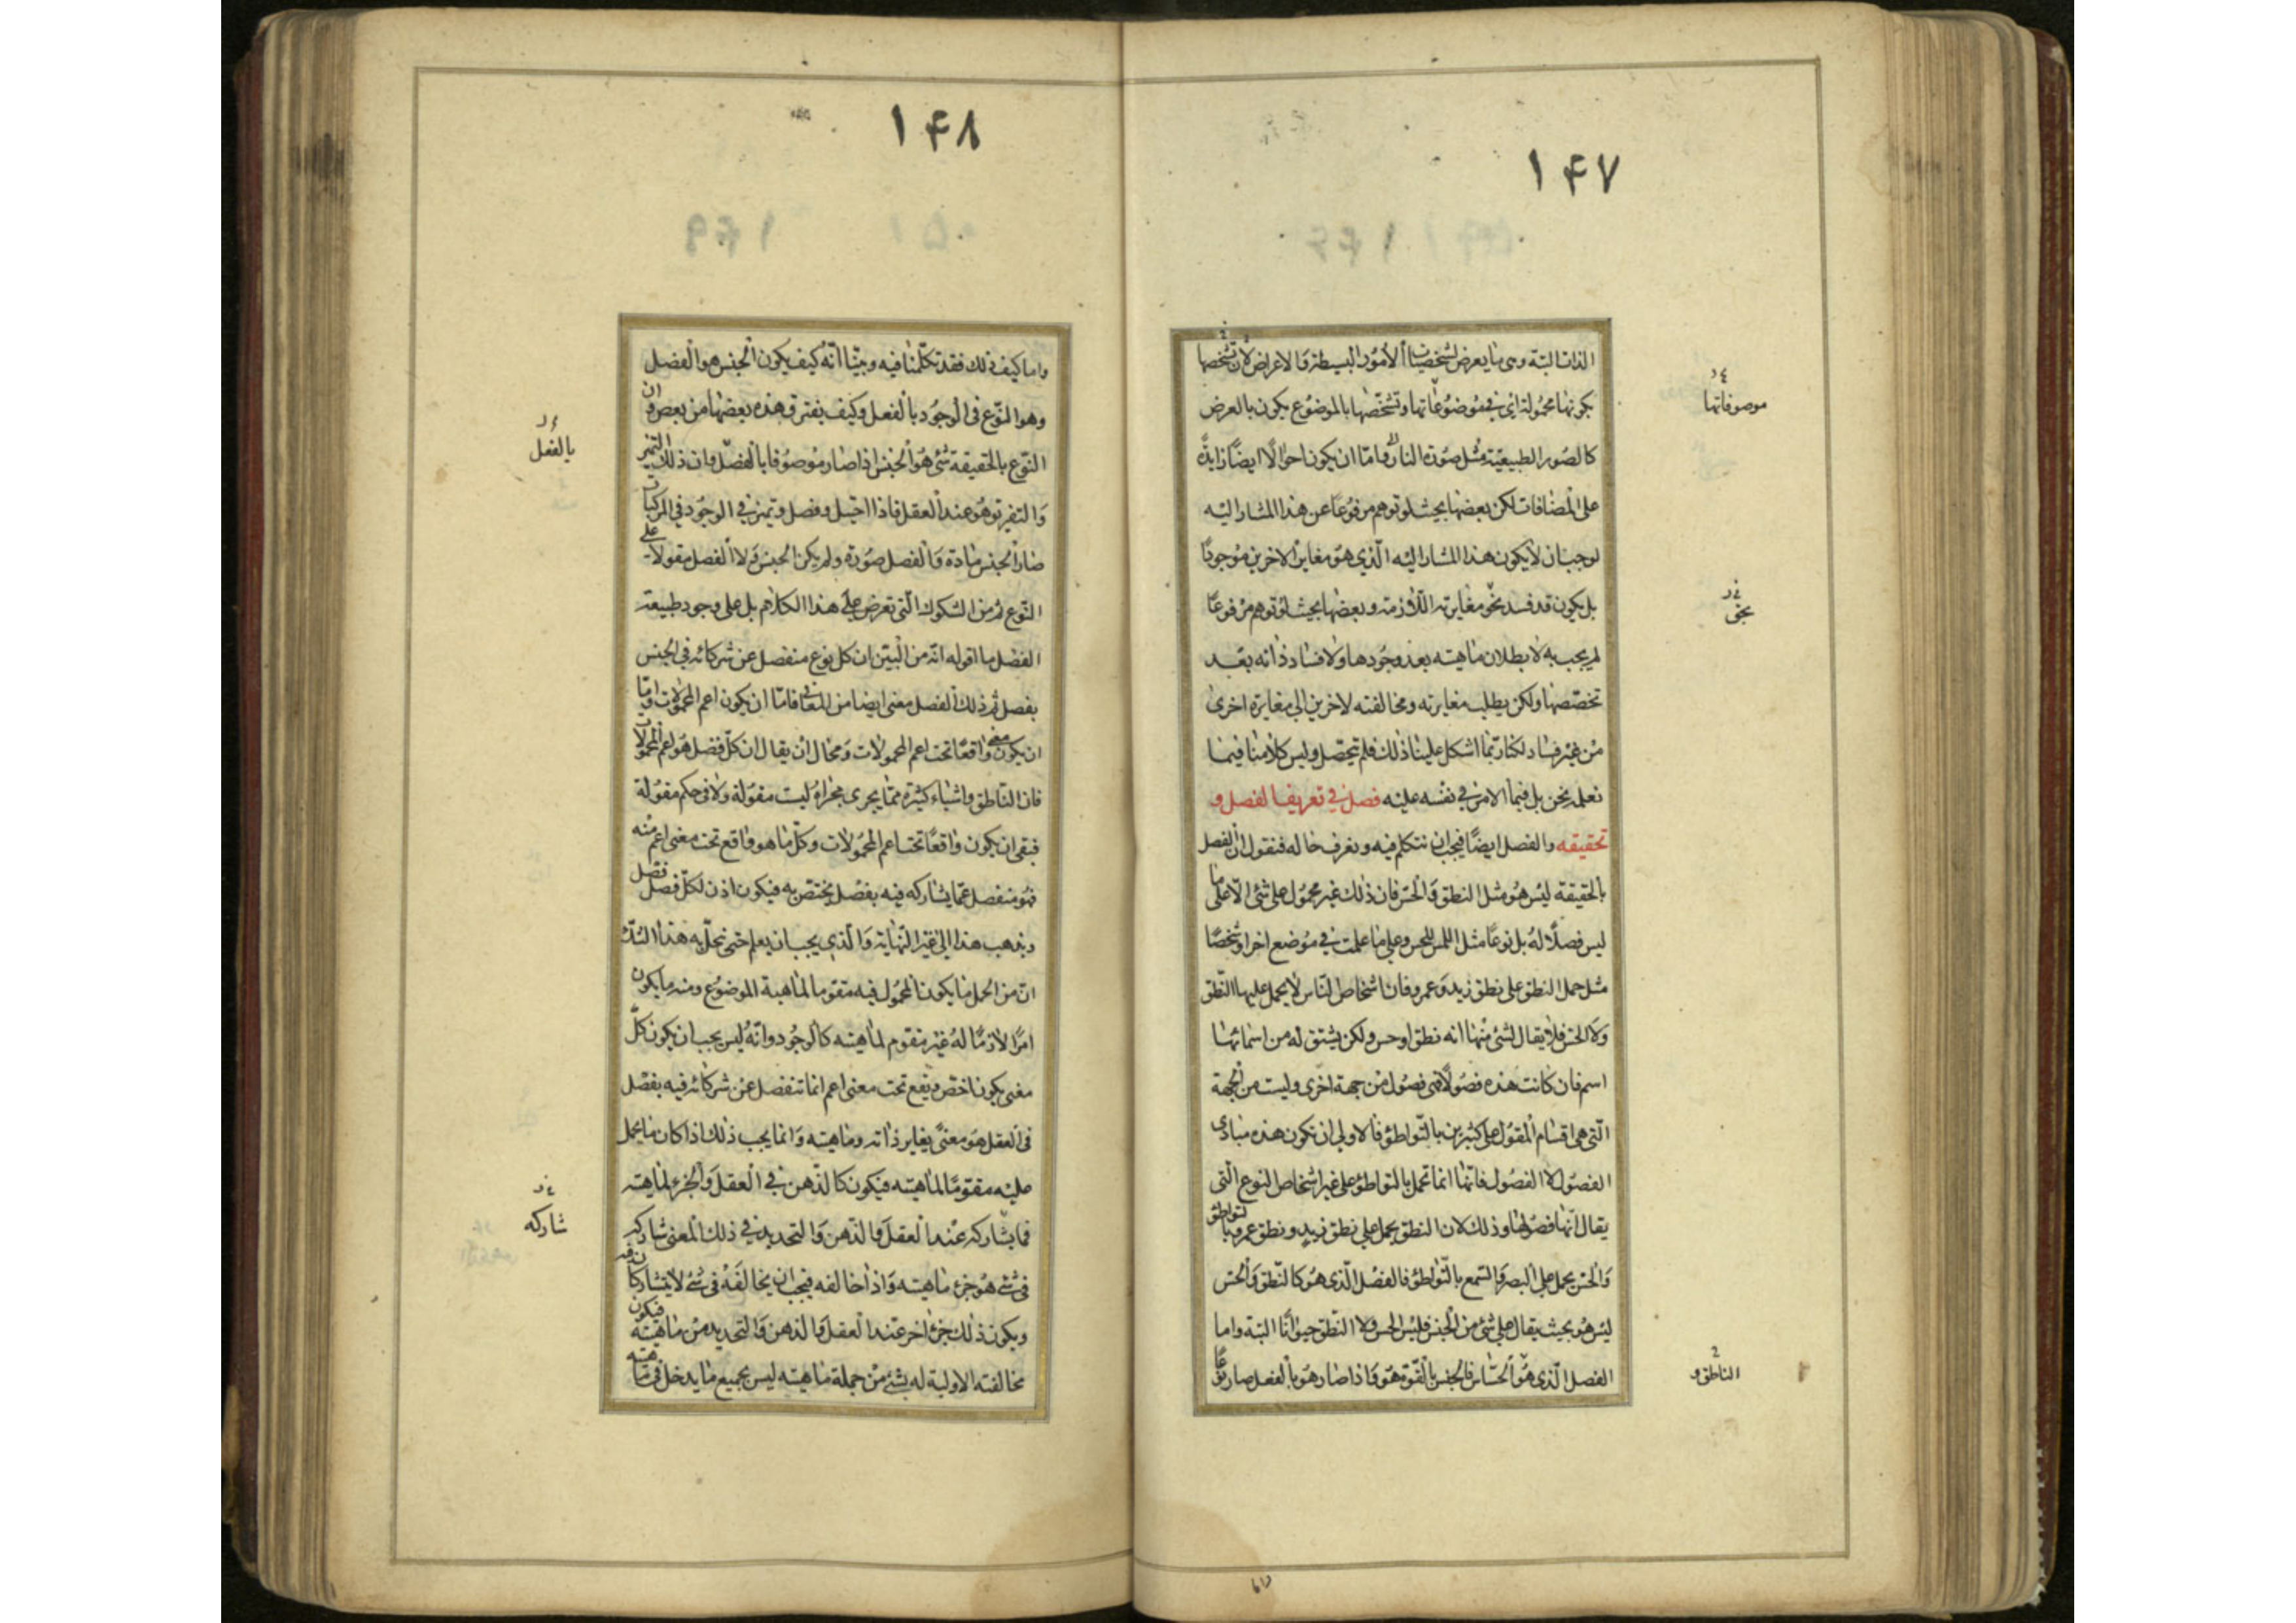 ۱۴۷
الذات البتة وهى ما يعرض لشخصيات الأمور البسيطة والاعراض لان تشخصها
بكونها محمولة اى فى موضوعاتها وتشخصها بالموضوع يكون بالعرض
كالصور الطبيعية مثل صورة النار واما ان يكون احوالا ايضا زايدة
على المضافات لكن بعضها بحيث لو توهم مرفوعا عن هذا المشار اليه
لوجب ان لا يكون هذا المشار اليه الذي هو مغاير الاخرين موجودا
بل يكون قد فسد نحو مغايرته اللازمة وبعضها بحيث لو توهم مرفوعا
لم يجب به لا بطلان ماهيته بعد وجودها ولا فساد ذاته بعد
تخصصها ولكن يطلب مغايرته ومخالفته لاخرين الى مغايرة اخرى
من غير فساد لكنا ربما اشكل علينا ذلك فلم يتحصل وليس كلامنا فيما
نعلمه نحن بل فيما الامر في نفسه عليه فصل في تعريف الفصل و
تحقيقه والفصل ايضا فيجب ان نتكلم فيه ونعرف حاله فنقول ان الفصل
بالحقيقة ليس هو مثل النطق والحس فان ذلك غير محمول على شئ الا على ما
ليس فصلا له بل نوعا مثل اللمس للحس وعلى ما علمت في موضع اخر او شخصا
مثل حمل النطق على نطق زيد وعمرو فان اشخاص الناس لا يحمل عليها النطق
ولا الحس فلا يقال لشئ منها انه نطق او حس ولكن يشتق له من اسمائها
اسم فان كانت هذه فصولا فهى فصول من جهة اخرى وليست من الجهة
التى هى اقسام المقول على كثيرين بالتواطئ فالاولى ان تكون هذه مبادى
الفصول لا الفصول فانها انما تحمل بالتواطؤ على غير اشخاص النوع التى
يقال انها فصولها وذلك لان النطق يحمل على نطق زيد ونطق عمرو بالتواطؤ
والحس يحمل على البصر والسمع بالتواطؤ فالفصل الذى هو كالنطق والحس
ليس هو بحيث يقال على شئ من الجنس فليس الحس ولا النطق حيوانا البتة واما
الفصل الذى هو الحساس فالجنس بالقوة هو واذا صار هو بالفعل صار نوعا
موصوفاتها
نحو
الناطق و
۱۴۸
واما كيف ذلك فقد تكلمنا فيه وبينا انه كيف يكون الجنس هو الفصل
وهو النوع فى الوجود بالفعل وكيف يفترق هذه بعضها من بعض وان
النوع بالحقيقة شئ هو الجنس اذا صار موصوفا بالفصل وان ذلك التميز
والتفريق هو عند العقل فاذا احتيل وفصل وتميز في الوجود في المركبات
صار الجنس مادة والفصل صورة ولم يكن الجنس ولا الفصل مقولا على
النوع ثم من الشكوك التى تعرض على هذا الكلام بل على وجود طبيعة
الفصل ما اقوله انه من البين ان كل نوع منفصل عن شركائه في الجنس
بفصل ثم ذلك الفصل معنى ايضا من المعانى فاما ان يكون اعم المحمولات واما
ان يكون معنى واقعا تحت اعم المحمولات ومحال ان يقال ان كل فصل هو اعم المحمولات
فان الناطق واشياء كثيرة مما يجرى مجراه ليست مقولة ولا فى حكم مقولة
فبقى ان يكون واقعا تحت اعم المحمولات وكل ما هو واقع تحت معنى اعم منه
فهو منفصل عما يشاركه فيه بفصل يختص به فيكون اذن لكل فصل فصل
ويذهب هذا الى غير النهاية والذى يجب ان يعلم حتى نحل به هذا الشك
ان من الحمل ما يكون المحمول فيه مقوما لماهية الموضوع ومنه ما يكون
امرا لازما له غير مقوم لماهيته كالوجود وانه ليس يجب ان يكون كل
معنى يكون اخص ويقع تحت معنى اعم انما تنفصل عن شركائه فيه بفصل
فى العقل هو معنى يغاير ذاته وماهيته وانما يجب ذلك اذا كان ما يحمل
عليه مقوما لماهيته فيكون كالذهن في العقل والجزء لماهيته
فما يشاركه عند العقل والذهن والتحديد في ذلك المعنى شاركه
فى شئ هو جزء ماهيته واذا خالفه فيجب ان يخالفه فى شئ لا يتشاركان فيه
ويكون ذلك جزء اخر عند العقل والذهن والتحديد من ماهيته فيكون
مخالفته الاولية له بشئ من جملة ماهيته ليس بجميع ما يدخل فى ماهيته
بالفعل
شاركه